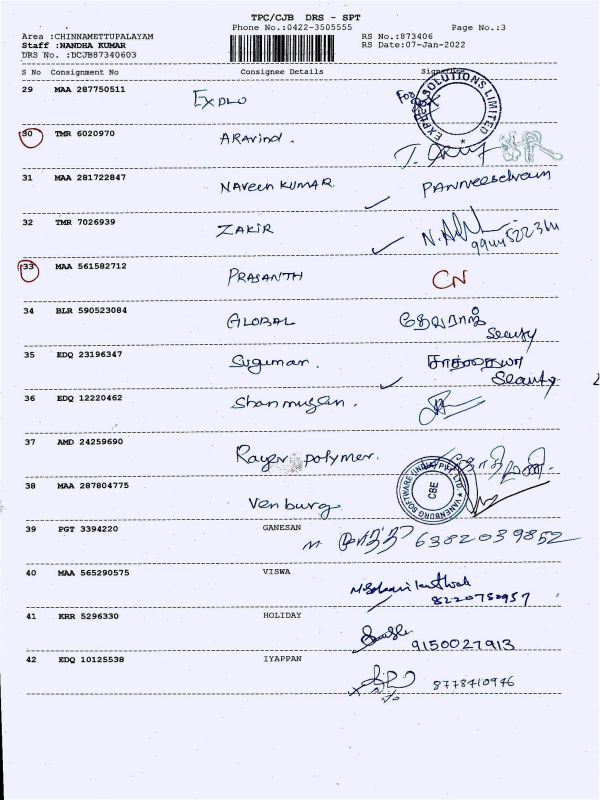 TPC/CJB DRS - SPT
Phone No.:0422-3505555 Page No.:3
Area :CHINNAMETTUPALAYAM RS No.:873406
Staff :NANDHA KUMAR RS Date:07-Jan-2022
DRS No. :DCJB87340603
S No Consignment No Consignee Details
29 MAA 287750511 EXDLO For
SOLUTIONS LIMITED
30 TMR 6020970 ARavind.
31 MAA 281722847 NAVEEN KUMAR. PANNEESelvam
32 TMR 7026939 ZAKIR
33 MAA 561582712 PRASANTH CN
34 BLR 590523084 GLOBAL தேவராஜ்
35 EDQ 23196347 Sugumar.
36 EDQ 12220462 Shanmugam.
37 AMD 24259690 polymer.
VANENBURG SOFTWARE (INDIA) PVT LTD. CBE
38 MAA 287804775 Venburg
39 PGT 3394220 GANESAN 6382039852
40 MAA 565290575 VISWA
41 KRR 5296330 HOLIDAY 9150027913
42 EDQ 10125538 IYAPPAN 8778410946